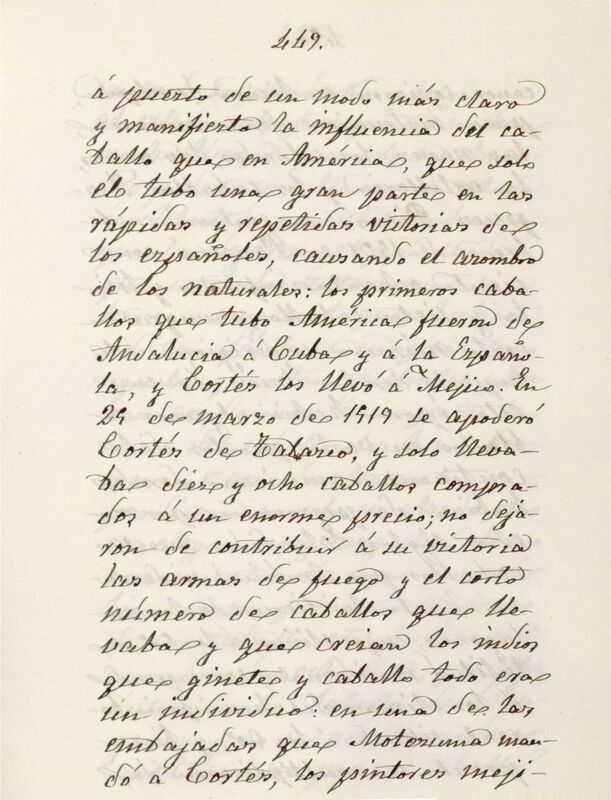 449.
á puerto de un modo más claro
y manifiesto la influencia del ca-
ballo que en América, que solo
él tubo una gran parte en las
rápidas y repetidas victorias de
los españoles, causando el asombro
de los naturales: los primeros caba-
llos que tubo América fueron de
Andalucia á Cuba y á la Españo-
la, y Cortés los llevó á Mejico. En
25 de marzo de 1519 se apoderó
Cortés de Tabasco, y solo lleva-
ba diez y ocho caballos compra-
dos á un enorme precio; no deja-
ron de contribuir á su victoria
las armas de fuego y el corto
número de caballos que lle-
vaba y que creian los indios
que ginete y caballo todo era
un individuo: en una de las
embajadas que Motezuma man-
dó á Cortés, los pintores meji-